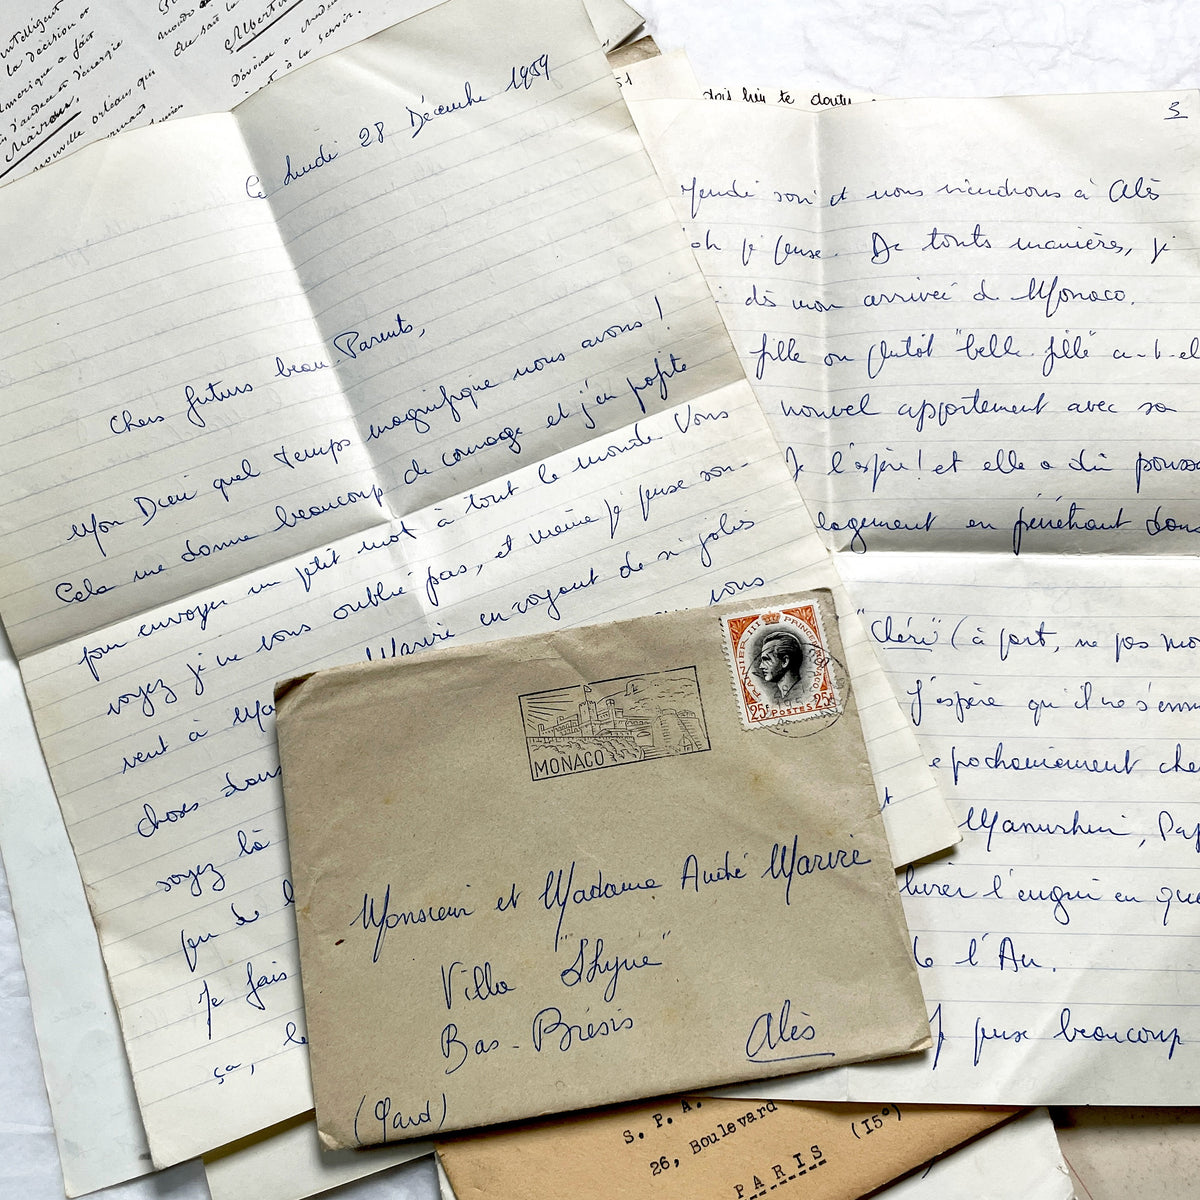 intelligent
la décision et
Amérique a fait
d'audace et d'énergie
Mairour,
nouvelle orléans qui
Albertin
Dévouée a
à la servir.
Ce lundi 28 Décembre 1959
Chers futurs beau Parents,
Mon Dieu quel temps magnifique nous avons!
Cela me donne beaucoup de courage et j'en profite
pour envoyer un petit mot à tout le monde. Vous
voyez je ne vous oublie pas, et même je pense sou-
vent à Marivé en voyant de si jolis
choses dans
vous
soyez là
peu de l
Je fais
ça, le
51
dois bien te douter
3
Jeudi soir et nous viendrons à Alès
je pense. De toutes manières, je
dès mon arrivée de Monaco.
fille ou plutôt "belle-fille" a-t-el
nouvel appartement avec sa
Je l'espère! et elle a dû pousse
logement en pénétrant dans
"Chéri" (à part, ne pas mo
J'espère qu'il ne s'ennu
prochainement che
Manurhin, Pap
livrer l'engin en que
de l'An.
Je pense beaucoup
RAINIER III PRINCE DE MONACO
25F POSTES 25F
MONACO
Monsieur et Madame André Mariré
Villa "Shyne"
Bas-Brésis
Alès
(Gard)
S. P. A.
26, Boulevard
PARIS (15°)